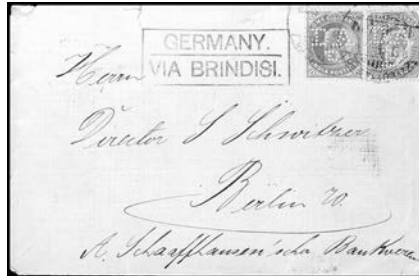 GERMANY.
VIA BRINDISI.
Herrn
Director S Schwitzer
Berlin W.
A. Schaaffhausen'scher Bankverein